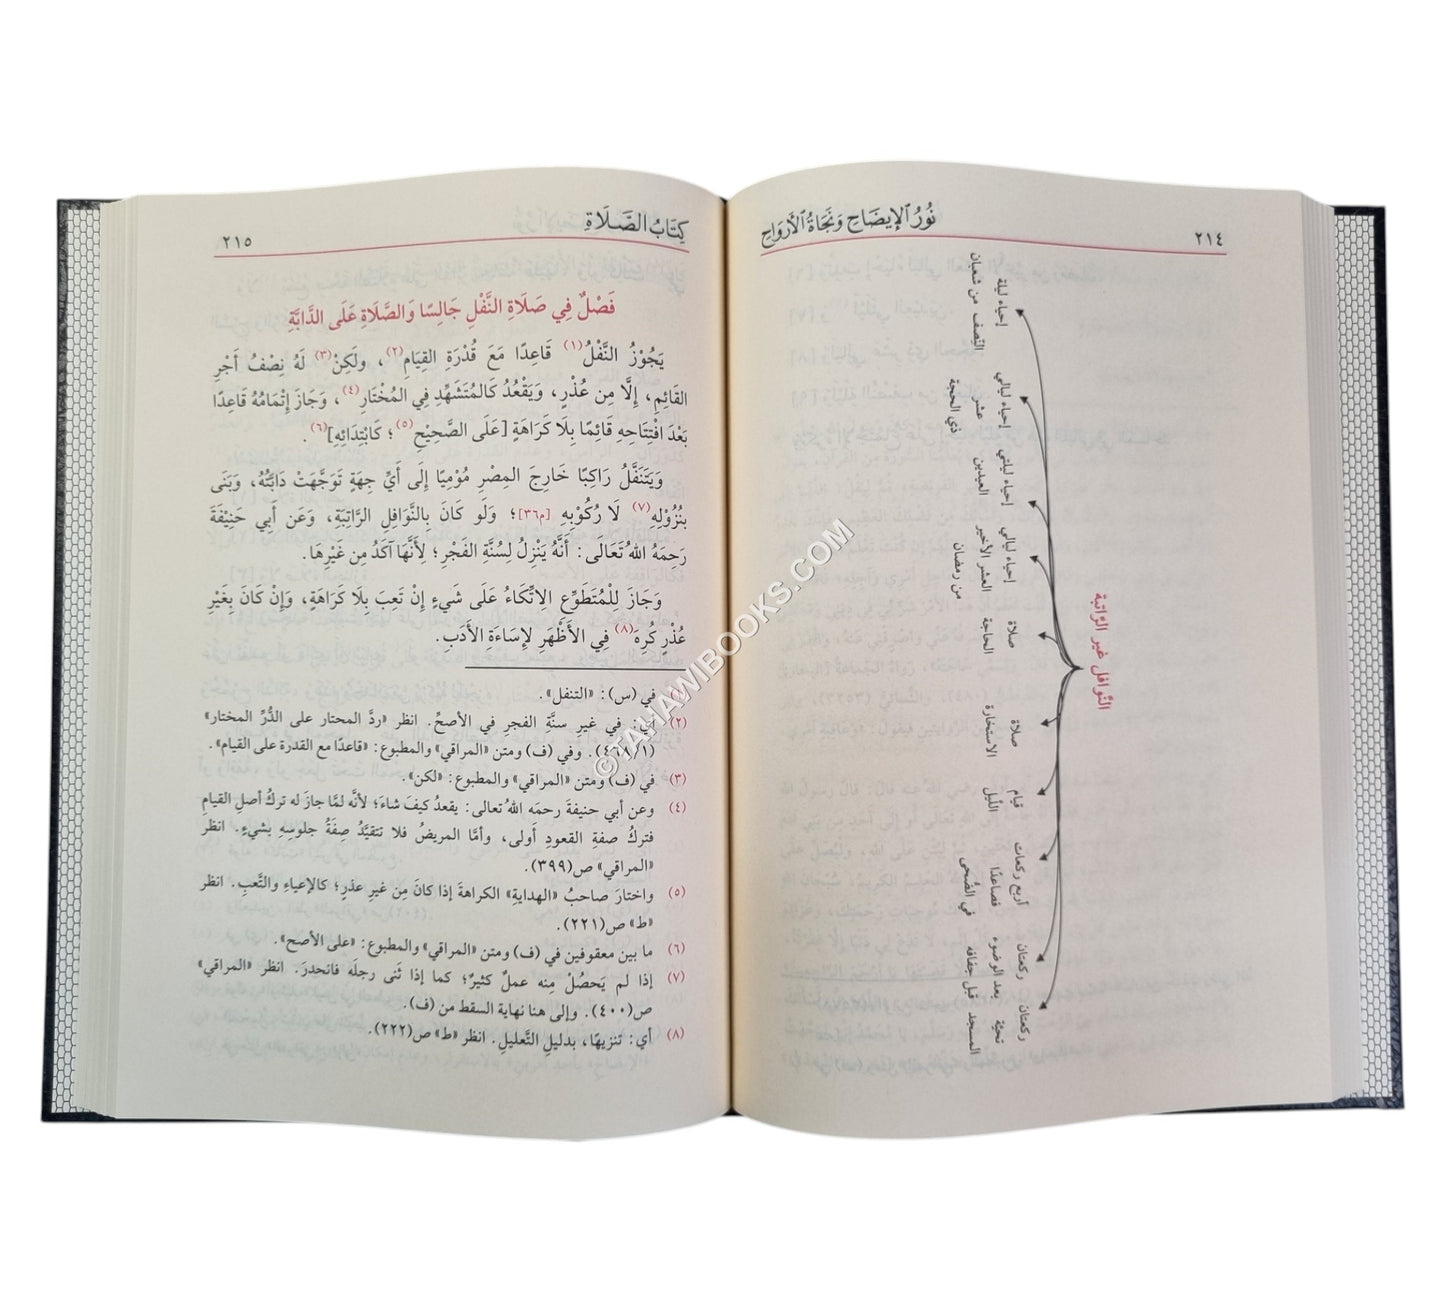 ٢١٤
نُورُ الإيضَاحِ وَنَجَاةُ الأَرْوَاحِ
النَّوافل غير الرَّاتبة
ركعتان
تحيَّة
المسجد
ركعتان
بعد الوضوء
قبل جفافه
أربع ركعات
فصاعدًا
في الضُّحى
قيام
اللَّيل
صلاة
الاستخارة
صلاة
الحاجة
إحياء ليالي
العشر الأخير
من رمضان
إحياء ليلتي
العيدين
إحياء ليالي
عشر
ذي الحجة
إحياء ليلة
النّصف من شعبان
كِتَابُ الصَّلَاةِ
٢١٥
فَصْلٌ فِي صَلَاةِ النَّفْلِ جَالِسًا وَالصَّلَاةِ عَلَى الدَّابَّةِ
يَجُوْزُ النَّفْلُ(١) قَاعِدًا مَعَ قُدْرَةِ القِيَامِ(٢)، ولَكِنْ(٣) لَهُ نِصْفُ أَجْرِ
القَائِمِ، إِلَّا مِن عُذْرٍ، وَيَقْعُدُ كَالمُتَشَهِّدِ فِي المُخْتَارِ(٤)، وَجَازَ إِتْمَامُهُ قَاعِدًا
بَعْدَ افْتِتَاحِهِ قَائِمًا بِلَا كَرَاهَةٍ [عَلَى الصَّحِيْحِ(٥)؛ كَابْتِدَائِهِ](٦).
وَيَتَنَفَّلُ رَاكِبًا خَارِجَ المِصْرِ مُوْمِيًا إِلَى أَيِّ جِهَةٍ تَوَجَّهَتْ دَابَّتُهُ، وَبَنَى
بِنُزُوْلِهِ(٧) لَا رُكُوْبِهِ [م٣٦]؛ وَلَو كَانَ بِالنَّوَافِلِ الرَّاتِبَةِ، وَعَن أَبِي حَنِيْفَةَ
رَحِمَهُ اللهُ تَعَالَى: أَنَّهُ يَنْزِلُ لِسُنَّةِ الفَجْرِ؛ لِأَنَّهَا آكَدُ مِن غَيْرِهَا.
وَجَازَ لِلْمُتَطَوِّعِ الِاتِّكَاءُ عَلَى شَيءٍ إِنْ تَعِبَ بِلَا كَرَاهَةٍ، وَإِنْ كَانَ بِغَيْرِ
عُذْرٍ كُرِهَ(٨) فِي الأَظْهَرِ لِإِسَاءَةِ الأَدَبِ.
(١) في (س): «التنفل».
(٢) أي: في غيرِ سنَّةِ الفجرِ في الأصحِّ. انظر «ردَّ المحتار على الدُّرِّ المختار»
(٤٦١/١). وفي (ف) ومتن «المراقي» والمطبوع: «قاعدًا مع القدرة على القيام».
(٣) في (ف) ومتن «المراقي» والمطبوع: «لكن»
(٤) وعن أبي حنيفةَ رحمَه اللهُ تعالى: يقعدُ كيفَ شاءَ؛ لأنَّه لمَّا جازَ له تركُ أصلِ القيامِ
فتركُ صفةِ القعودِ أولى، وأمَّا المريضُ فلا تتقيَّدُ صِفَةُ جلوسِهِ بشيءٍ. انظر
«المراقي» ص(٣٩٩).
(٥) واختارَ صاحبُ «الهدايةِ» الكراهةَ إذا كانَ مِن غيرِ عذرٍ؛ كالإعياءِ والتَّعبِ. انظر
«ط» ص(٢٢١).
(٦) ما بين معقوفين في (ف) ومتن «المراقي» والمطبوع: «على الأصح».
(٧) إذا لم يَحصُلْ مِنه عملٌ كثيرٌ؛ كما إذا ثَنى رجلَه فانحدرَ. انظر «المراقي»
ص(٤٠٠). وإلى هنا نهاية السقط من (ف).
(٨) أي: تنزيهًا، بدليلِ التَّعليلِ. انظر «ط» ص(٢٢٢).
©TAHAWIBOOKS.COM